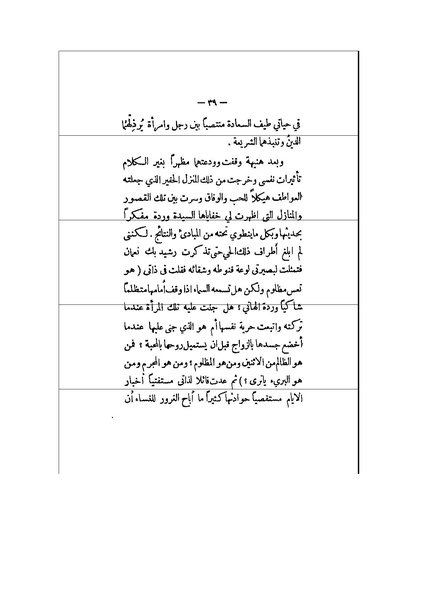 — ٣٩ —
في حياتي طيف السعادة منتصبًا بين رجل وامرأة يُرذِلْهُما
الدينُ وتنبذهما الشريعة .
وبعد هنيهة وقفت وودعتهما مظهرًا بغير الكلام
تأثيرات نفسي وخرجت من ذلك المنزل الحقير الذي جعلته
العواطف هيكلًا للحب والوفاق وسرت بين تلك القصور
والمنازل التي اظهرت لي خفاياها السيدة وردة مفكرًا
بحديثها وبكل ماينطوي تحته من المبادئ والنتائج . لكنني
لم ابلغ أطراف ذلك الحي حتى تذكرت رشيد بك نعمان
فتمثلت لبصيرتي لوعة قنوطه وشقائه فقلت في ذاتي ( هو
تعس مظلوم ولكن هل تسمعه السماء اذا وقف أمامها متظلمًا
شاكيًا وردة الهاني ؟ هل جنت عليه تلك المرأة عندما
تركته واتبعت حرية نفسها أم هو الذي جنى عليها عندما
أخضع جسدها بالزواج قبل ان يستميل روحها بالمحبة ؟ فمن
هو الظالم من الاثنين ومن هو المظلوم ؟ ومن هو المجرم ومن
هو البريء ياترى ؟ ) ثم عدت قائلًا لذاتي مستفتيًا أخبار
الايام مستقصيًا حوادثها كثيرًا ما أباح الغرور للنساء أن